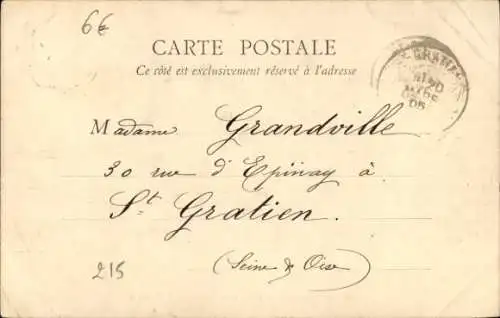 6€
CARTE POSTALE
Ce côté est exclusivement réservé à l'adresse
Madame Grandville
30 rue d'Epinay à
St. Gratien.
(Seine & Oise)
215